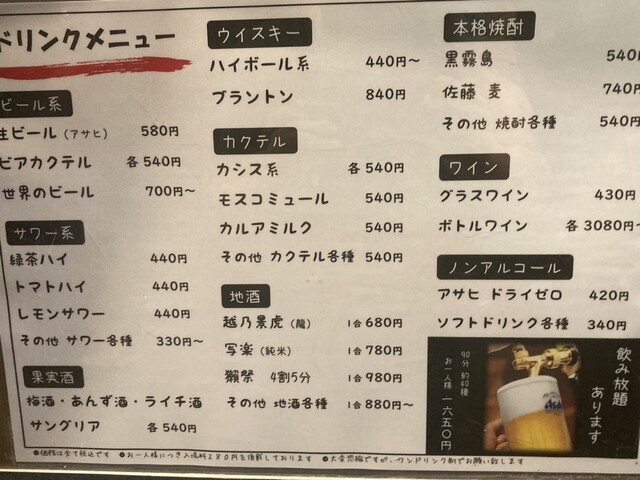 ドリンクメニュー
ビール系
生ビール(アサヒ) 580円
ビアカクテル 各540円
世界のビール 700円~
サワー系
緑茶ハイ 440円
トマトハイ 440円
レモンサワー 440円
その他 サワー各種 330円~
果実酒
梅酒・あんず酒・ライチ酒
サングリア 各540円
ウイスキー
ハイボール系 440円~
ブラントン 840円
カクテル
カシス系 各540円
モスコミュール 540円
カルアミルク 540円
その他 カクテル各種 540円
地酒
越乃景虎(龍) 1合680円
写楽(純米) 1合780円
獺祭 4割5分 1合980円
その他 地酒各種 1合880円~
本格焼酎
黒霧島 540円
佐藤 麦 740円
その他 焼酎各種 540円
ワイン
グラスワイン 430円
ボトルワイン 各3080円~
ノンアルコール
アサヒ ドライゼロ 420円
ソフトドリンク各種 340円
飲み放題
あります
90分 約40種
お一人様 一六五〇円
●価格は全て税込です ●お一人様につき入場料280円を頂戴しております ●大変恐縮ですが、ワンドリンク制でお願い致します